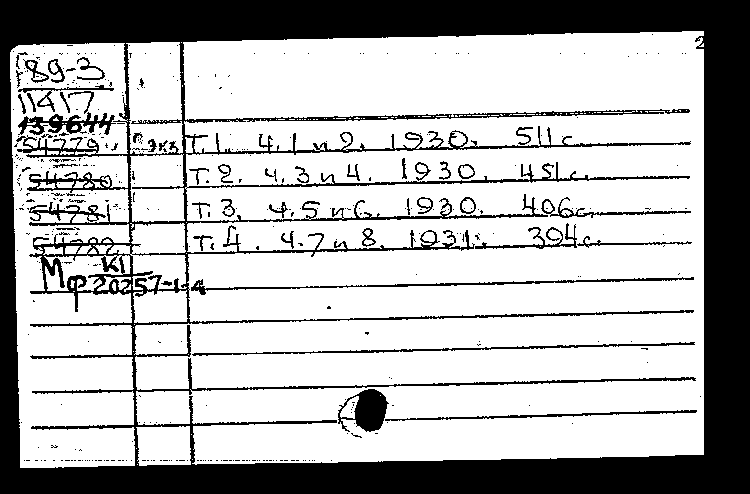 2
89-3
11417
139644
54779 Экз Т.1. Ч.1 и 2. 1930. 511 с.
54780 Т.2. Ч.3 и 4. 1930. 451 с.
54781 Т.3. Ч.5 и 6. 1930. 406 с.
54782 Т.4. Ч.7 и 8. 1931. 394 с.
Мф К1
20257-1-4